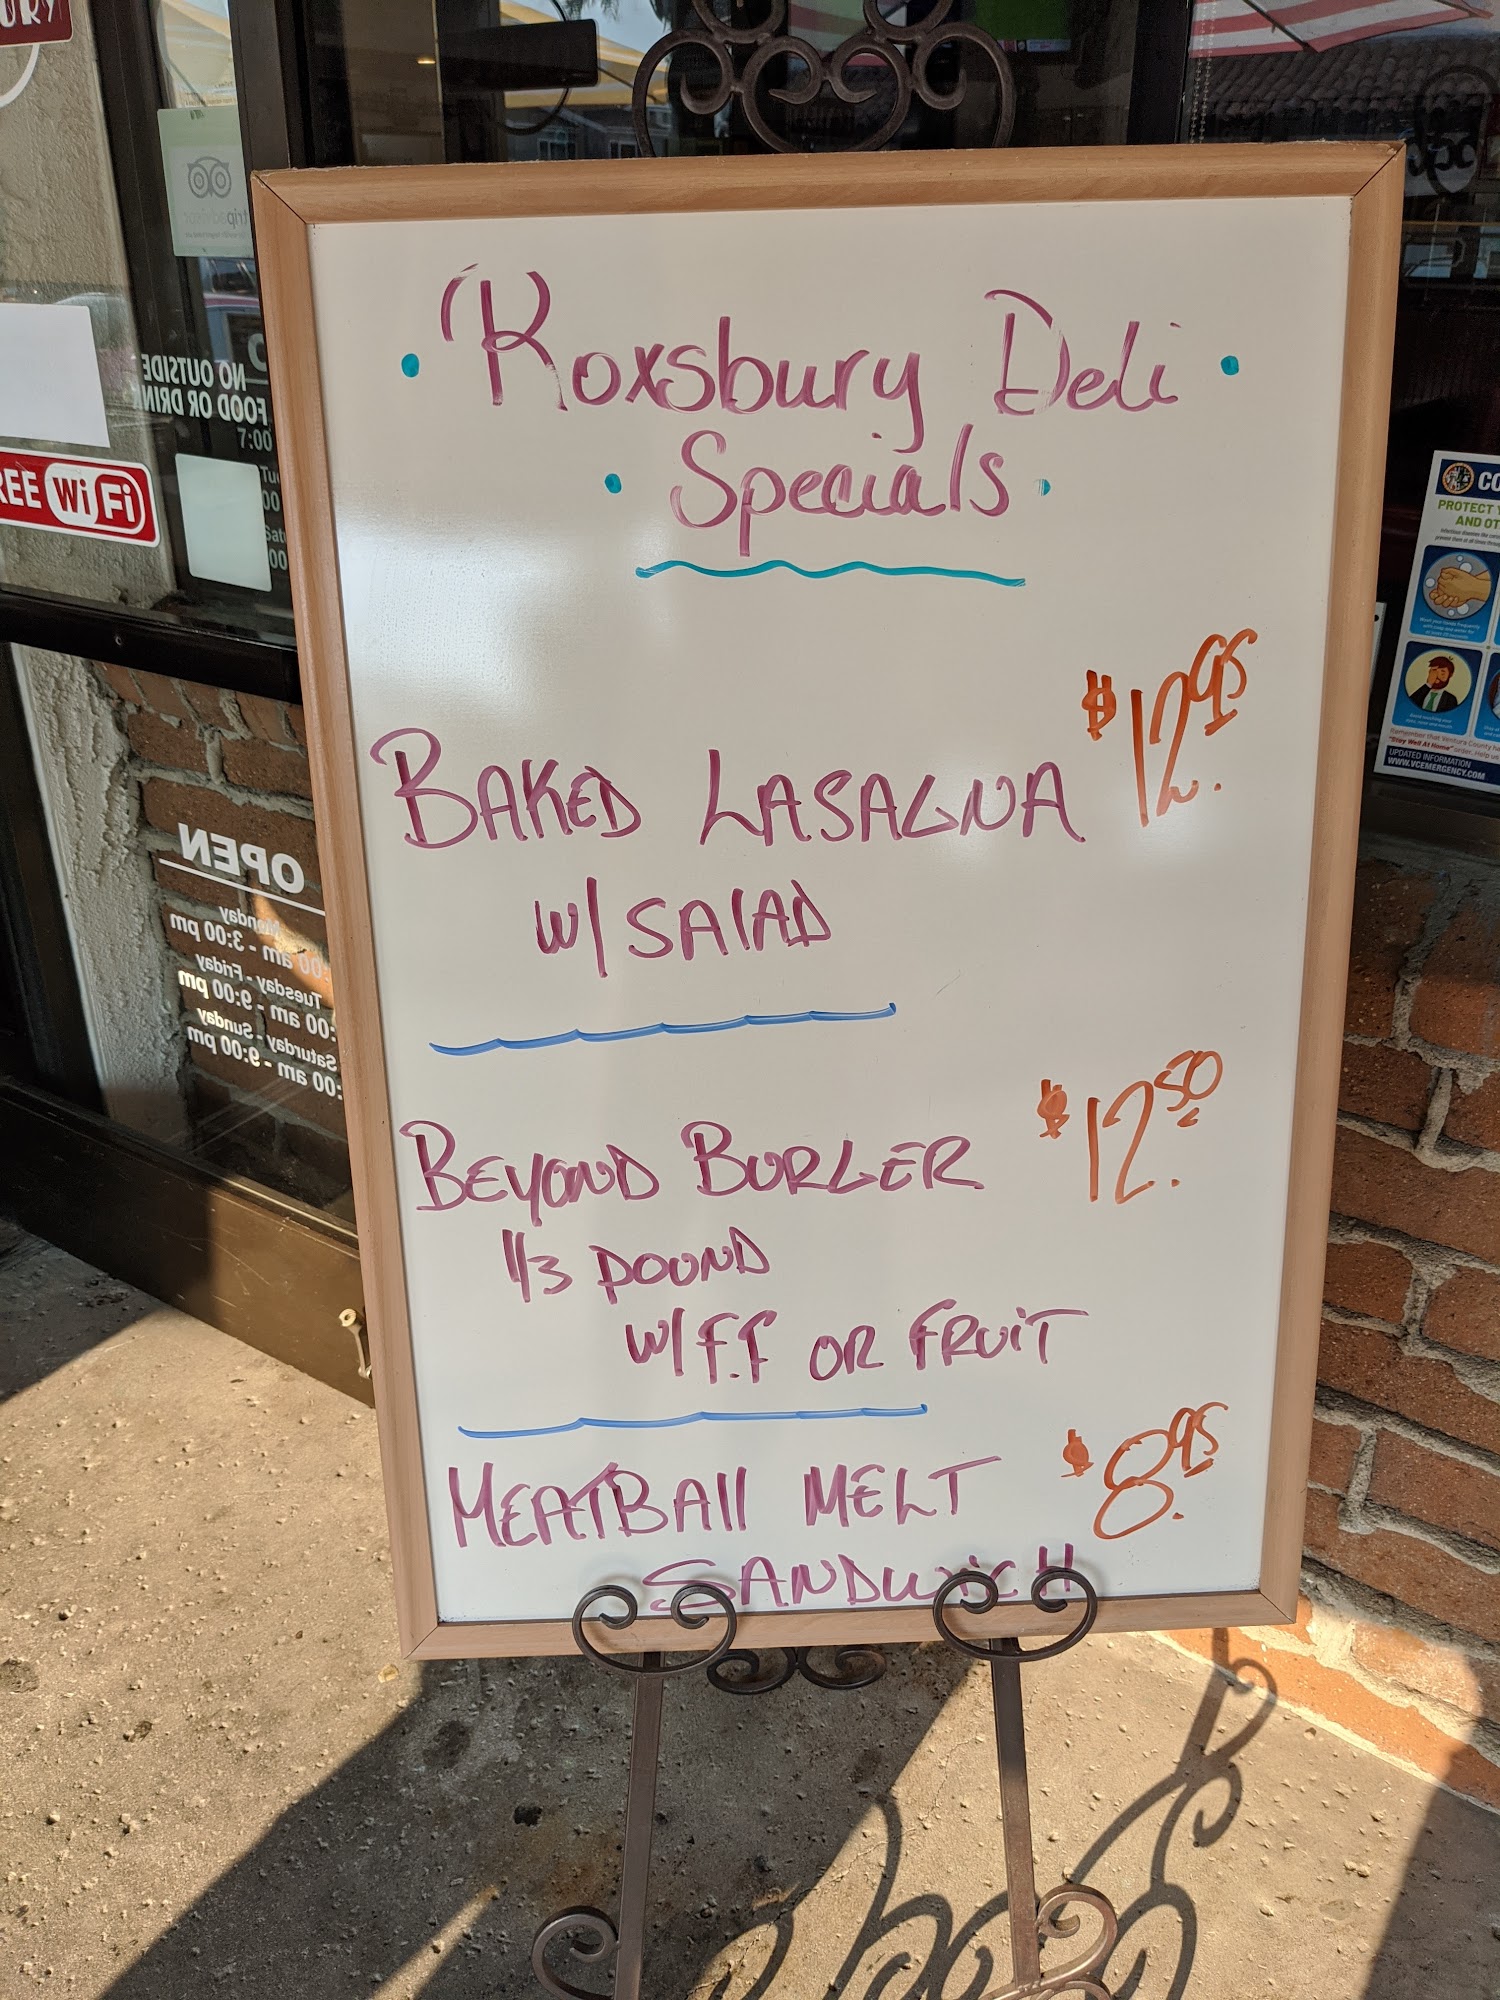 URY
tripadvisor
NO OUTSIDE
FOOD OR DRINK
7:00
Tu
00
Satu
00
REE WiFi
· Roxsbury Deli ·
· Specials ·
BAKED LASAGNA $12.95
W/ SALAD
BEYOND BURGER $12.50
1/3 POUND
W/ F.F OR FRUIT
MEATBALL MELT $8.95
SANDWICH
OPEN
Monday
:00 am - 3:00 pm
Tuesday - Friday
:00 am - 9:00 pm
Saturday - Sunday
:00 am - 9:00 pm
CO
PROTECT Y
AND OT
Remember that Ventura County ha
"Stay Well At Home" order. Help us
UPDATED INFORMATION
WWW.VCEMERGENCY.COM